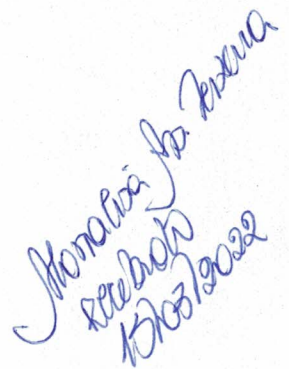 Monalisa Ap. Teixeira
recebido
15/03/2022